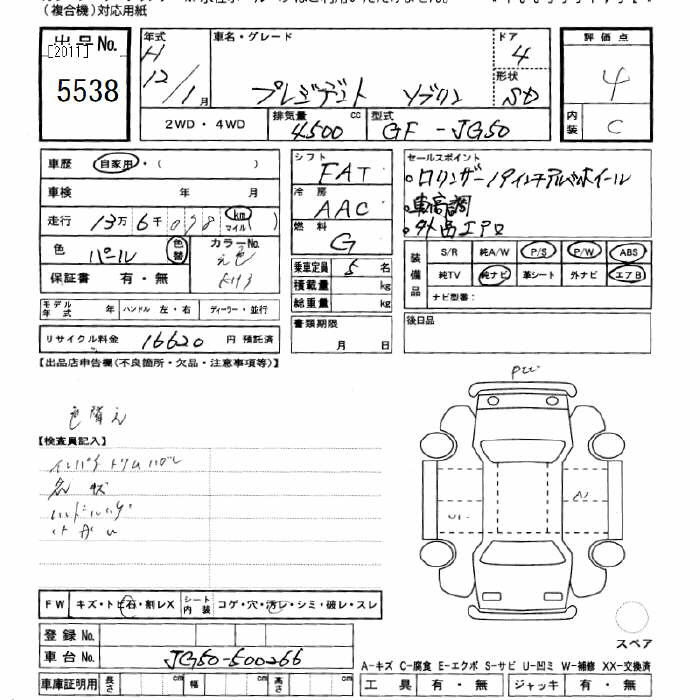 （複合機）対応用紙
出品No.
[2011]
5538
年式
H
12/1月
車名・グレード
プレジデント ソブリン
ドア
4
形状
SD
評価点
4
内装
C
2WD・4WD
排気量
4500 cc
型式
GF-JG50
車歴 自家用・( )
車検 年 月
走行 13万 6千 098 km マイル( )
色 パール 色替 カラーNo.
保証書 有・無
モデル年式 年 ハンドル 左・右 ディーラー・並行
リサイクル料金 16620 円 預託済
シフト
FAT
冷房
AAC
燃料
G
乗車定員 5 名
積載量 kg
総重量 kg
書類期限
月 日
セールスポイント
車高調
外品エアロ
装備品
S/R 純A/W P/S P/W ABS
純TV 純ナビ 革シート 外ナビ エアB
ナビ型番：
後日品
【出品店申告欄(不良箇所・欠品・注意事項等)】
色替え
【検査員記入】
FW キズ・トビ石・割レX シート内装 コゲ・穴・汚レ・シミ・破レ・スレ
登録No.
車台No. JG50-500266
車庫証明用 長さ cm 幅 cm 高さ cm
スペア
A-キズ C-腐食 E-エクボ S-サビ U-凹ミ W-補修 XX-交換済
工具 有・無 ジャッキ 有・無